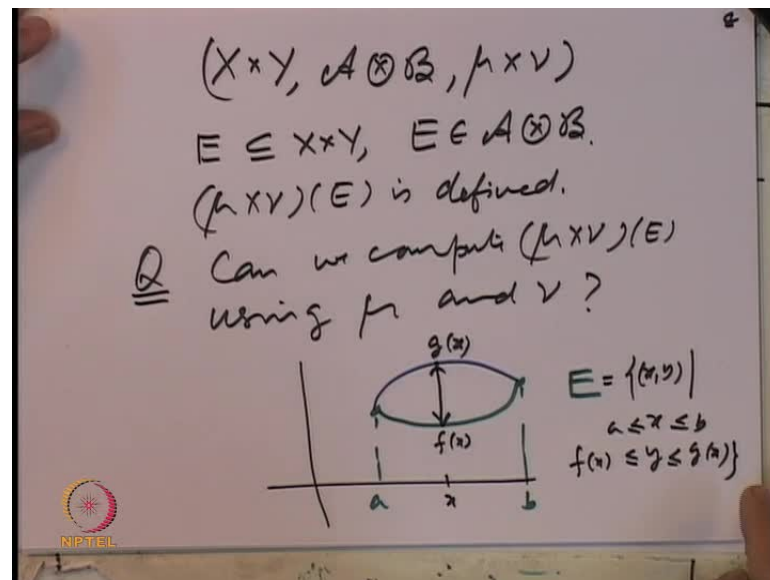 (X×Y, A⊗B, μ×ν)
E ⊆ X×Y, E ∈ A⊗B.
(μ×ν)(E) is defined.
Q Can we compute (μ×ν)(E)
using μ and ν?
g(x)
f(x)
a x b
E = {(x,y) |
a ≤ x ≤ b
f(x) ≤ y ≤ g(x)}
NPTEL